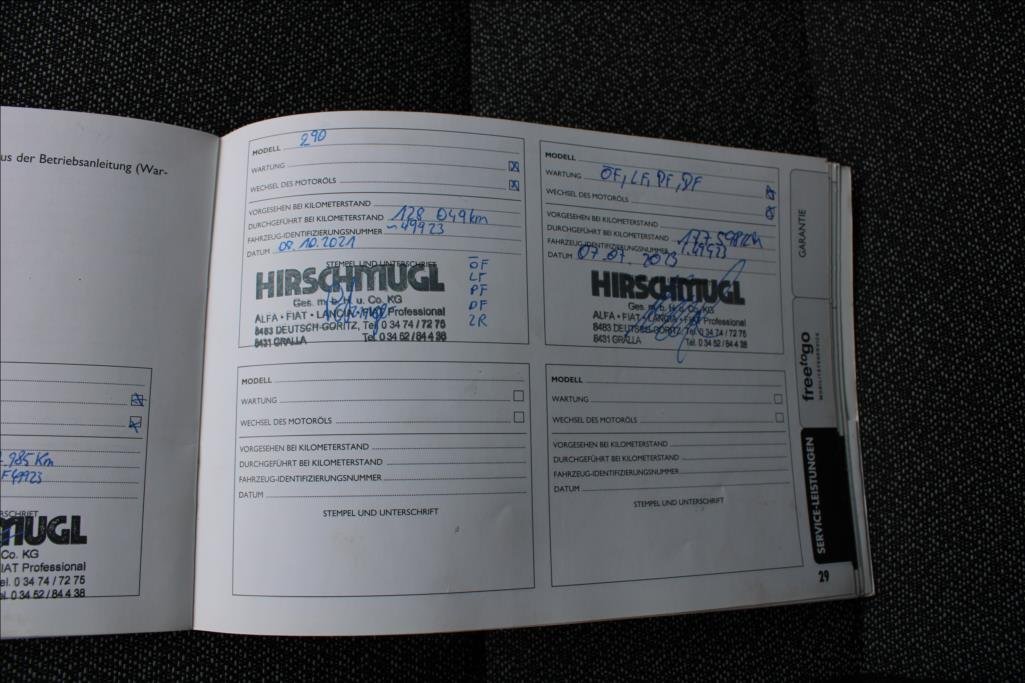 us der Betriebsanleitung (War-
985 Km
F49923
MUGL
Co. KG
IAT Professional
el. 0 34 74 / 72 75
el. 0 34 52 / 84 4 38
MODELL 290
WARTUNG
WECHSEL DES MOTORÖLS
VORGESEHEN BEI KILOMETERSTAND
DURCHGEFÜHRT BEI KILOMETERSTAND 128 049km
FAHRZEUG-IDENTIFIZIERUNGSNUMMER ~49923
DATUM 08.10.2021
STEMPEL UND UNTERSCHRIFT
HIRSCHMUGL
Ges. m. b. H. u. Co. KG
ALFA • FIAT • LANCIA • FIAT Professional
8483 DEUTSCH-GORITZ, Tel. 0 34 74 / 72 75
8431 GRALLA Tel. 0 34 52 / 84 4 38
ÖF
LF
PF
DF
ZR
MODELL
WARTUNG ÖF, LF, PF, DF
WECHSEL DES MOTORÖLS
VORGESEHEN BEI KILOMETERSTAND
DURCHGEFÜHRT BEI KILOMETERSTAND 177 598 km
FAHRZEUG-IDENTIFIZIERUNGSNUMMER 49923
DATUM 07.07. 2023
HIRSCHMUGL
Ges. m. b. H. u. Co. KG
ALFA • FIAT • LANCIA • FIAT Professional
8483 DEUTSCH-GORITZ, Tel. 0 34 74 / 72 75
8431 GRALLA Tel. 0 34 52 / 84 4 38
MODELL
WARTUNG
WECHSEL DES MOTORÖLS
VORGESEHEN BEI KILOMETERSTAND
DURCHGEFÜHRT BEI KILOMETERSTAND
FAHRZEUG-IDENTIFIZIERUNGSNUMMER
DATUM
STEMPEL UND UNTERSCHRIFT
MODELL
WARTUNG
WECHSEL DES MOTORÖLS
VORGESEHEN BEI KILOMETERSTAND
DURCHGEFÜHRT BEI KILOMETERSTAND
FAHRZEUG-IDENTIFIZIERUNGSNUMMER
DATUM
STEMPEL UND UNTERSCHRIFT
GARANTIE
freetogo
MOBILITÄTSSERVICE
SERVICE-LEISTUNGEN
29